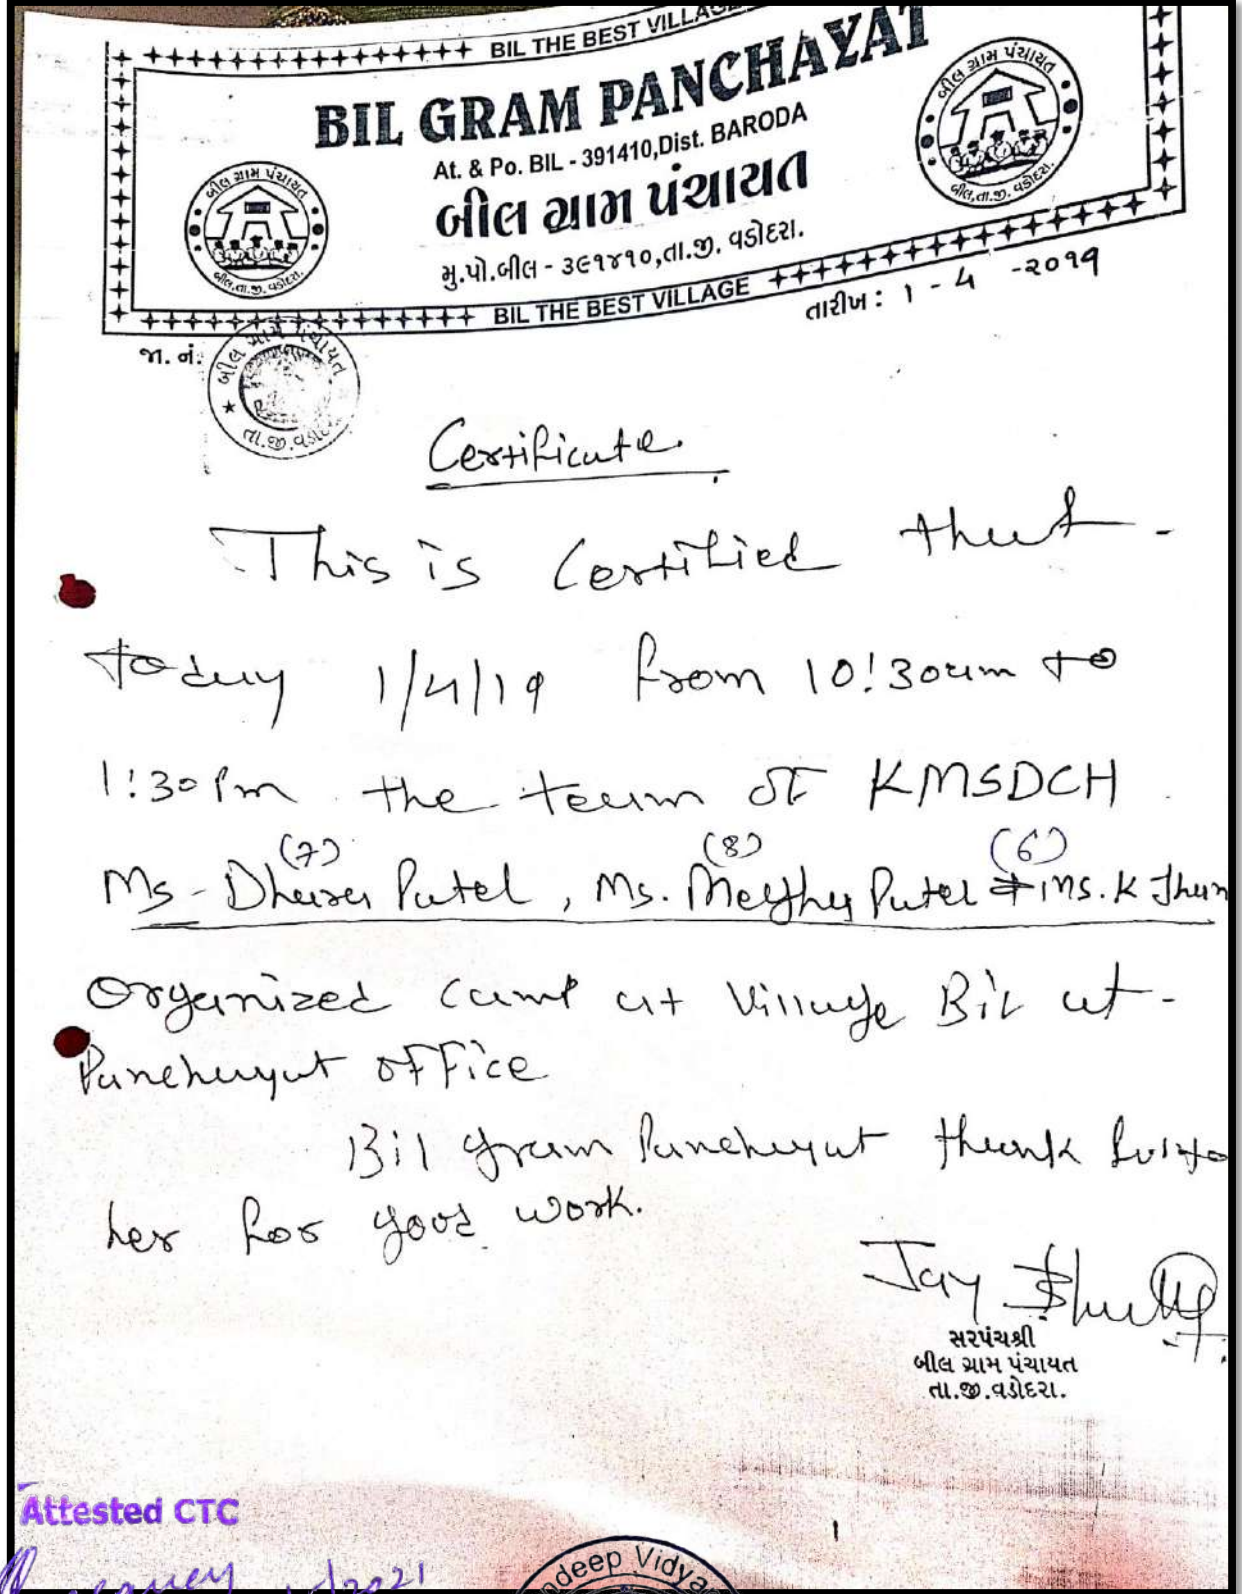 BIL THE BEST VILLAGE
BIL GRAM PANCHAYAT
At. & Po. BIL - 391410,Dist. BARODA
બીલ ગ્રામ પંચાયત
મુ.પો.બીલ - ૩૯૧૪૧૦,તા.જી. વડોદરા.
બીલ ગ્રામ પંચાયત
બીલ,તા.જી. વડોદરા.
બીલ ગ્રામ પંચાયત
બીલ,તા.જી. વડોદરા.
BIL THE BEST VILLAGE
તારીખ : ૧ - ૪ -૨૦૧૯
જા. નં.
બીલ ગ્રામ પંચાયત
તા.જી.વડોદરા
Certificate.
This is Certified that -
today 1/4/19 from 10:30am to
1:30 Pm the team of KMSDCH
(7) (8) (6)
Ms - Patel , Ms. Patel Ms. K
Organized camp at Village Bil at -
Panchayat office
Bil gram Panchayat thank
her for good work.
Jay Bhatt
સરપંચશ્રી
બીલ ગ્રામ પંચાયત
તા.જી.વડોદરા.
Attested CTC
/2021
ndeep Vidya